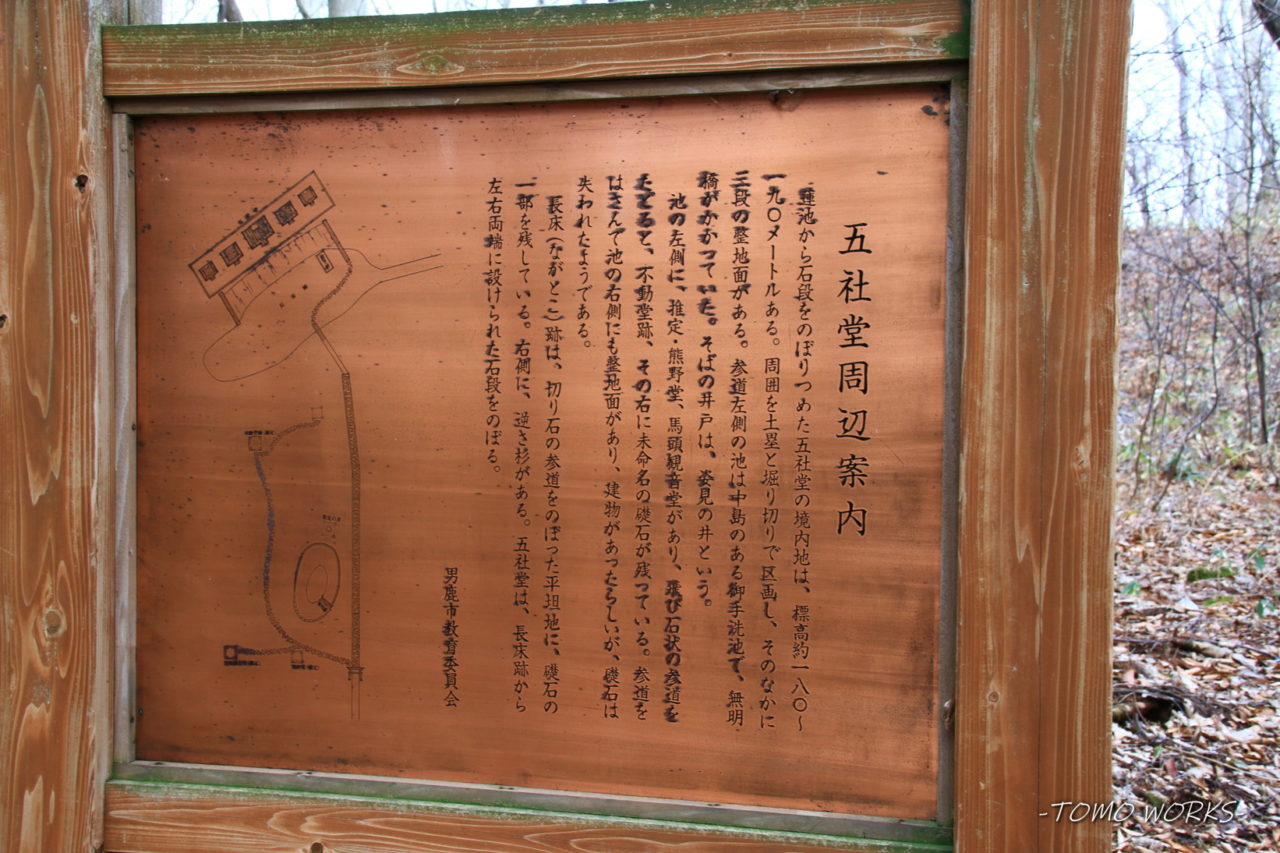 五社堂周辺案内
蓮池から石段をのぼりつめた五社堂の境内地は、標高約一八〇～
一九〇メートルある。周囲を土塁と堀り切りで区画し、そのなかに
三段の整地面がある。参道左側の池は中島のある御手洗池で、無明
橋がかかっていた。そばの井戸は、姿見の井という。
池の左側に、推定・熊野堂、馬頭観音堂があり、飛び石状の参道を
たどると、不動堂跡、その右に未命名の礎石が残っている。参道を
はさんで池の右側にも整地面があり、建物があったらしいが、礎石は
失われたようである。
長床（ながとこ）跡は、切り石の参道をのぼった平坦地に、礎石の
一部を残している。右側に、逆さ杉がある。五社堂は、長床跡から
左右両端に設けられた石段をのぼる。
男鹿市教育委員会
-TOMO WORKS-